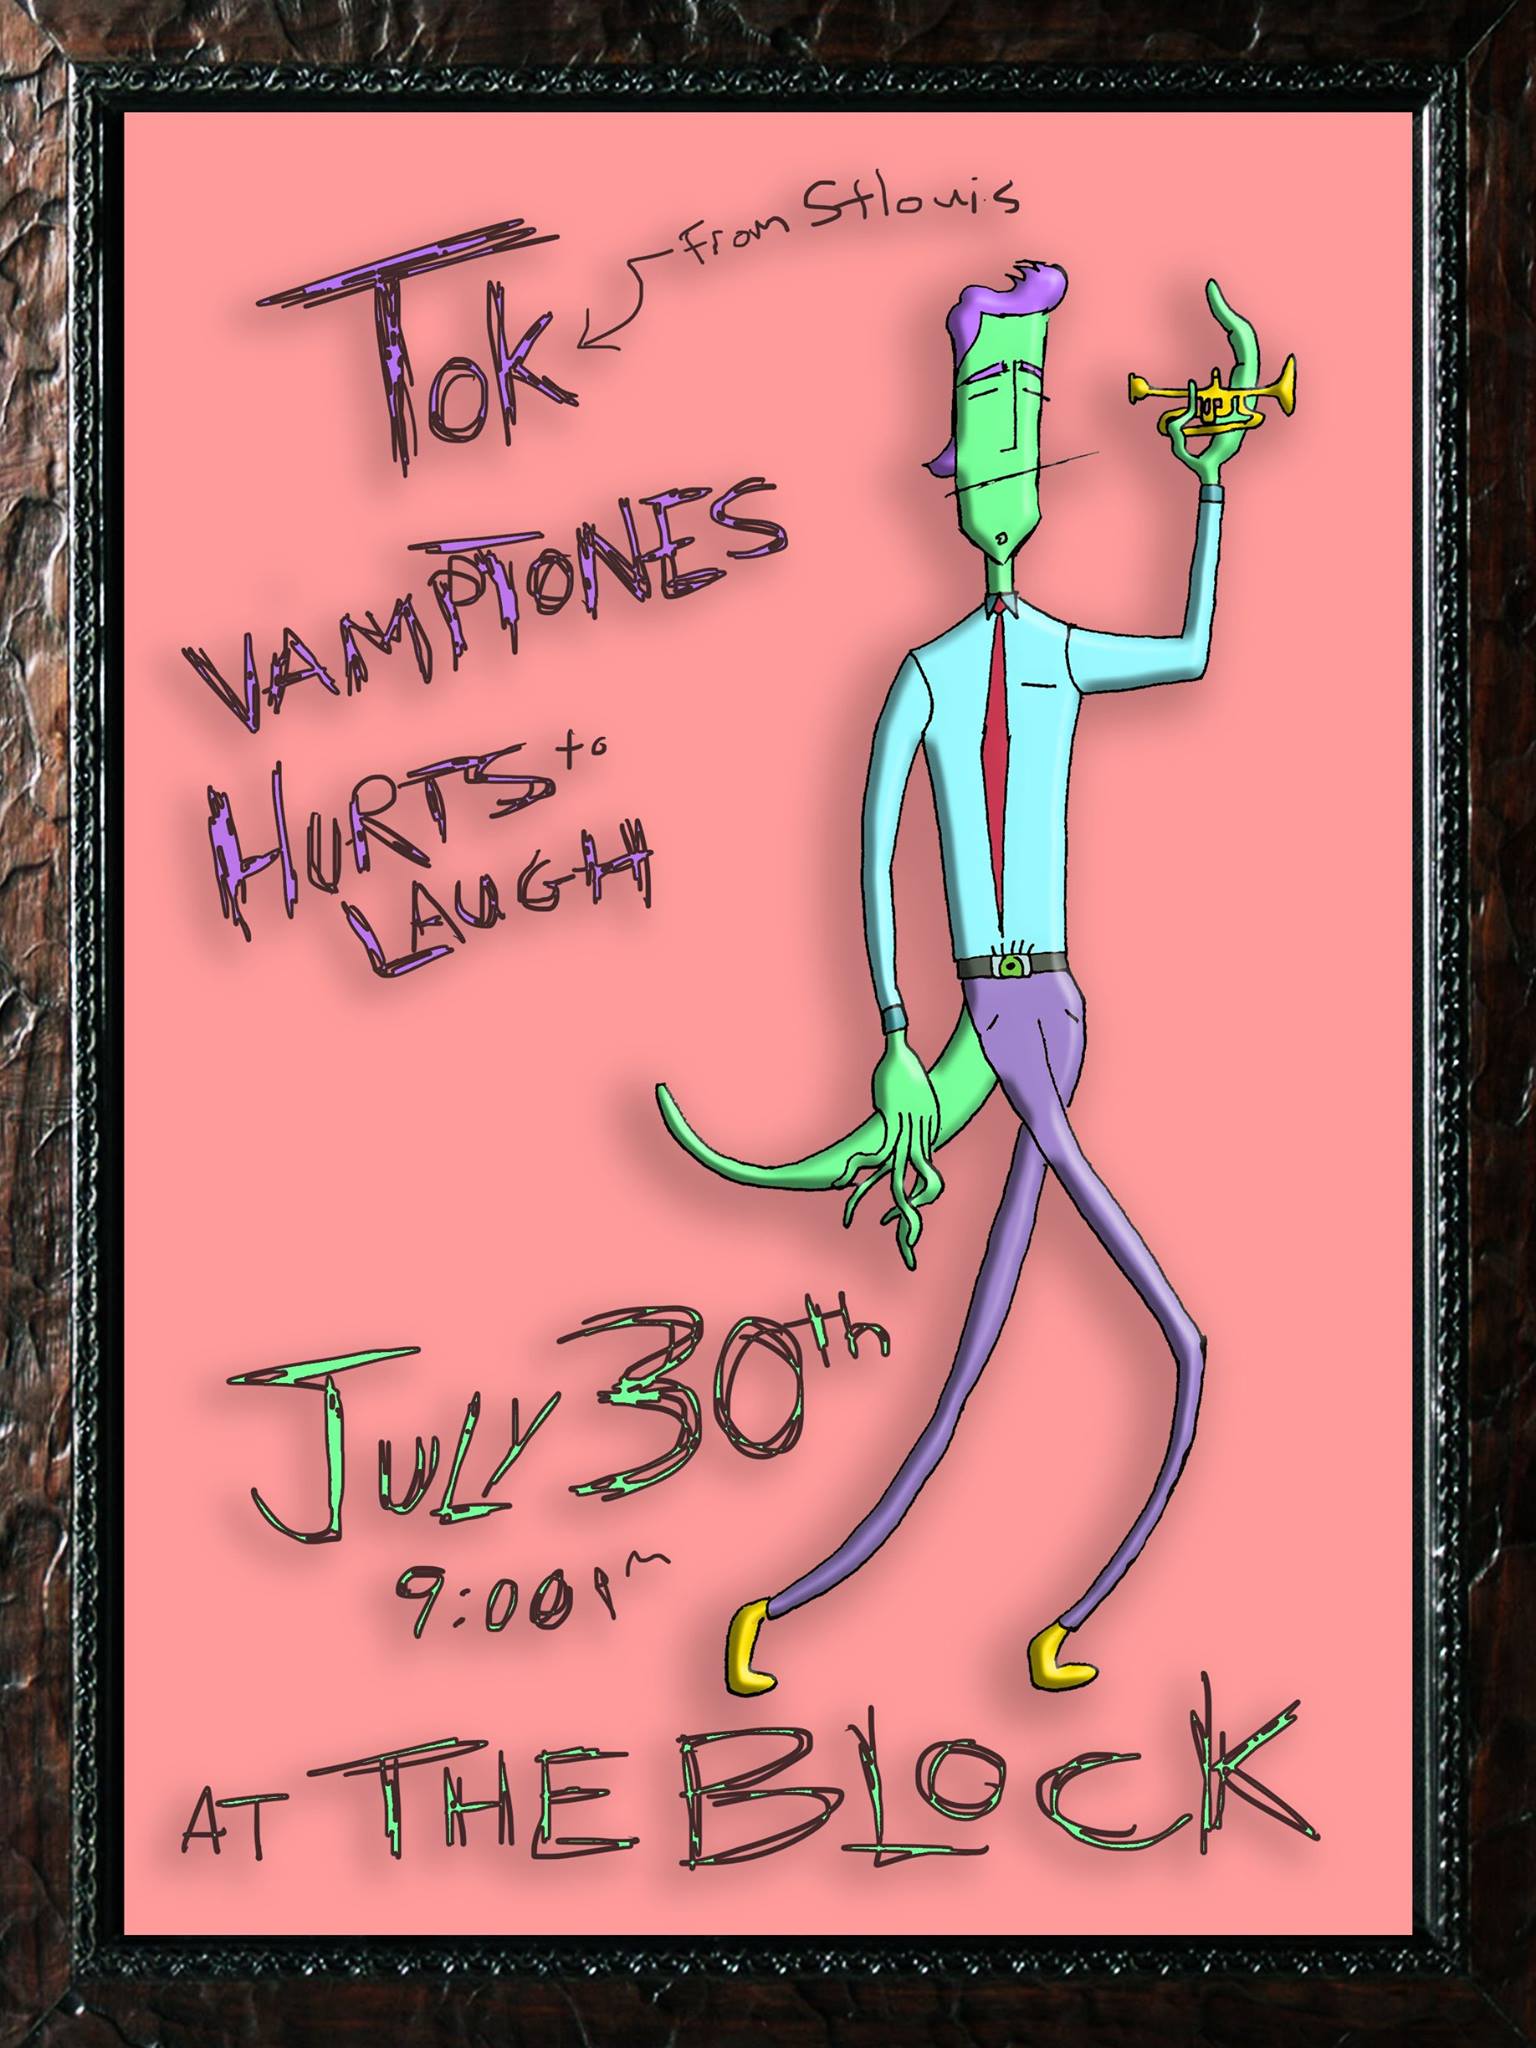 From Stlouis
Tok
VAMPTONES
HURTS to
LAUGH
JULY 30th
9:00pm
AT THE BLOCK